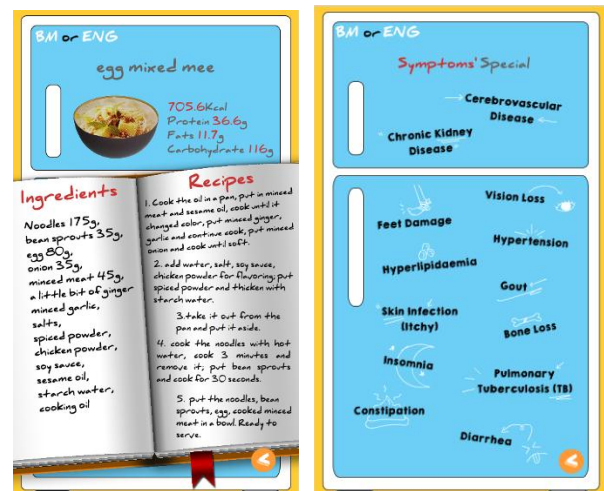 BM or ENG
egg mixed mee
705.6Kcal
Protein 36.6g
Fats 11.7g
Carbohydrate 116g
Ingredients
Noodles 175g,
bean sprouts 35g,
egg 80g,
onion 35g,
minced meat 45g,
a little bit of ginger
minced garlic,
salts,
spiced powder,
chicken powder,
soy sauce,
sesame oil,
starch water,
cooking oil
Recipes
1. Cook the oil in a pan, put in minced
meat and sesame oil, cook until it
changed color, put minced ginger,
garlic and continue cook, put minced
onion and cook until soft.
2. add water, salt, soy sauce,
chicken powder for flavoring; put
spiced powder and thicken with
starch water.
3.take it out from the
pan and put it aside.
4. cook the noodles with hot
water, cook 3 minutes and
remove it; put bean sprouts
and cook for 30 seconds.
5. put the noodles, bean
sprouts, egg, cooked minced
meat in a bowl. Ready to
serve.
BM or ENG
Symptoms' Special
Cerebrovascular
Disease
Chronic Kidney
Disease
Vision Loss
Feet Damage
Hypertension
Hyperlipidaemia
Gout
Skin Infection
(Itchy)
Bone Loss
Insomnia
Pulmonary
Tuberculosis (TB)
Constipation
Diarrhea